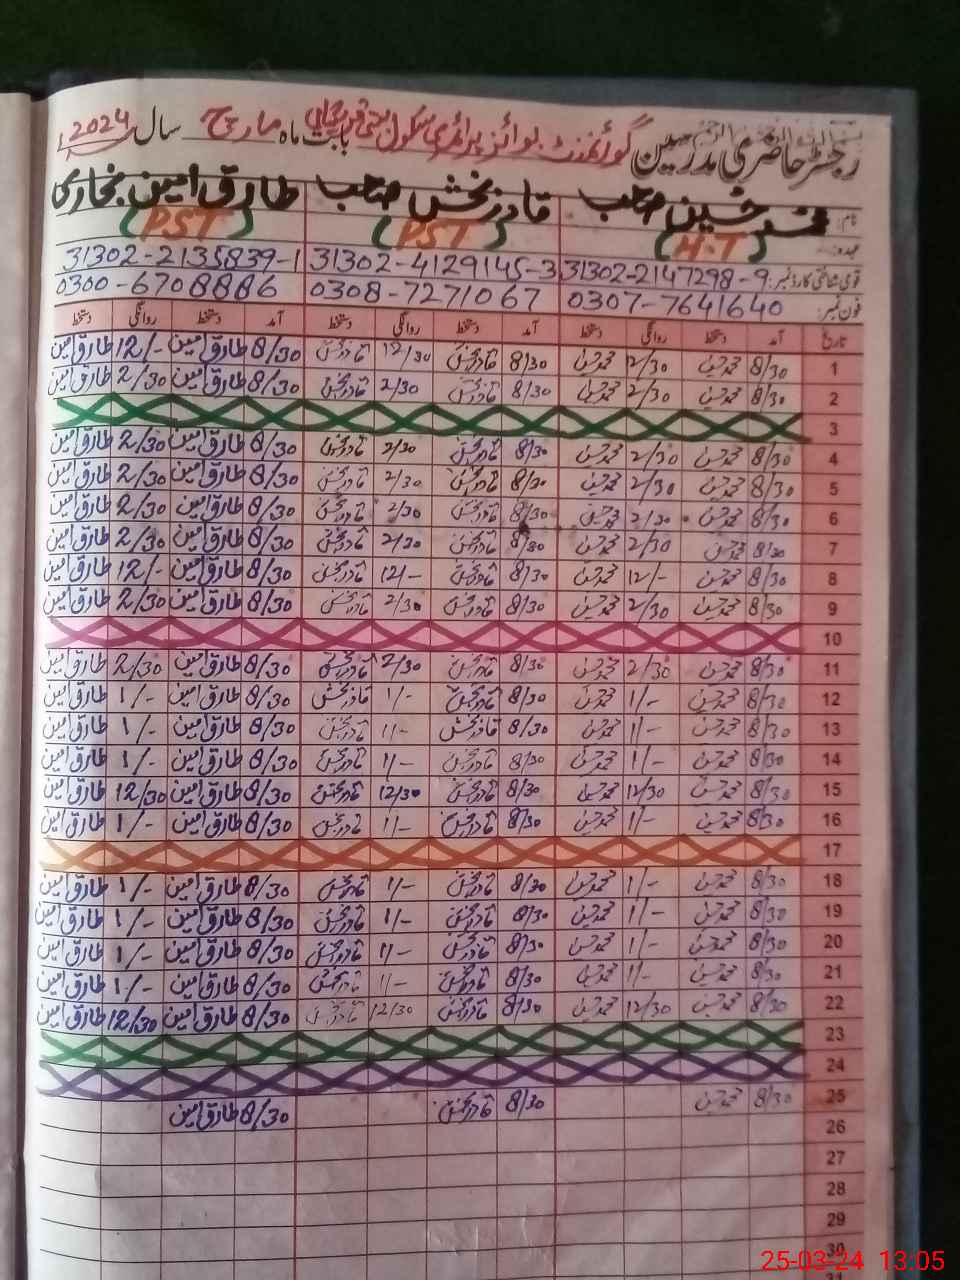 رجسٹر حاضری مدرسین گورنمنٹ بوائز پرائمری سکول بستی بابت ماہ مارچ سال 2024
نام: حسین صاحب قادر بخش صاحب طارق امین بخاری
عہدہ: (H.T) (PST) (PST)
قومی شناختی کارڈ نمبر: 31302-2147298-9 31302-4129145-3 31302-2135839-1
فون نمبر: 0307-7641640 0308-7271067 0300-6708886
تاریخ آمد دستخط روانگی دستخط آمد دستخط روانگی دستخط آمد دستخط روانگی دستخط
1 8/30 محمد حسین 12/30 محمد حسین 8/30 قادر بخش 12/30 قادر بخش 8/30 طارق امین 12/- طارق امین
2 8/30 محمد حسین 2/30 محمد حسین 8/30 قادر بخش 2/30 قادر بخش 8/30 طارق امین 2/30 طارق امین
3
4 8/30 محمد حسین 2/30 محمد حسین 8/30 قادر بخش 2/30 قادر بخش 8/30 طارق امین 2/30 طارق امین
5 8/30 محمد حسین 2/30 محمد حسین 8/30 قادر بخش 2/30 قادر بخش 8/30 طارق امین 2/30 طارق امین
6 8/30 محمد حسین 2/30 محمد حسین 8/30 قادر بخش 2/30 قادر بخش 8/30 طارق امین 2/30 طارق امین
7 8/30 محمد حسین 2/30 محمد حسین 8/30 قادر بخش 2/30 قادر بخش 8/30 طارق امین 2/30 طارق امین
8 8/30 محمد حسین 12/- محمد حسین 8/30 قادر بخش 12/- قادر بخش 8/30 طارق امین 12/- طارق امین
9 8/30 محمد حسین 2/30 محمد حسین 8/30 قادر بخش 2/30 قادر بخش 8/30 طارق امین 2/30 طارق امین
10
11 8/30 محمد حسین 2/30 محمد حسین 8/30 قادر بخش 2/30 قادر بخش 8/30 طارق امین 2/30 طارق امین
12 8/30 محمد حسین 1/- محمد حسین 8/30 قادر بخش 1/- قادر بخش 8/30 طارق امین 1/- طارق امین
13 8/30 محمد حسین 1/- محمد حسین 8/30 قادر بخش 1/- قادر بخش 8/30 طارق امین 1/- طارق امین
14 8/30 محمد حسین 1/- محمد حسین 8/30 قادر بخش 1/- قادر بخش 8/30 طارق امین 1/- طارق امین
15 8/30 محمد حسین 12/30 محمد حسین 8/30 قادر بخش 12/30 قادر بخش 8/30 طارق امین 12/30 طارق امین
16 8/30 محمد حسین 1/- محمد حسین 8/30 قادر بخش 1/- قادر بخش 8/30 طارق امین 1/- طارق امین
17
18 8/30 محمد حسین 1/- محمد حسین 8/30 قادر بخش 1/- قادر بخش 8/30 طارق امین 1/- طارق امین
19 8/30 محمد حسین 1/- محمد حسین 8/30 قادر بخش 1/- قادر بخش 8/30 طارق امین 1/- طارق امین
20 8/30 محمد حسین 1/- محمد حسین 8/30 قادر بخش 1/- قادر بخش 8/30 طارق امین 1/- طارق امین
21 8/30 محمد حسین 1/- محمد حسین 8/30 قادر بخش 1/- قادر بخش 8/30 طارق امین 1/- طارق امین
22 8/30 محمد حسین 12/30 محمد حسین 8/30 قادر بخش 12/30 قادر بخش 8/30 طارق امین 12/30 طارق امین
23
24
25 8/30 محمد حسین 8/30 قادر بخش 8/30 طارق امین
26
27
28
29
30
31
25-03-24 13:05